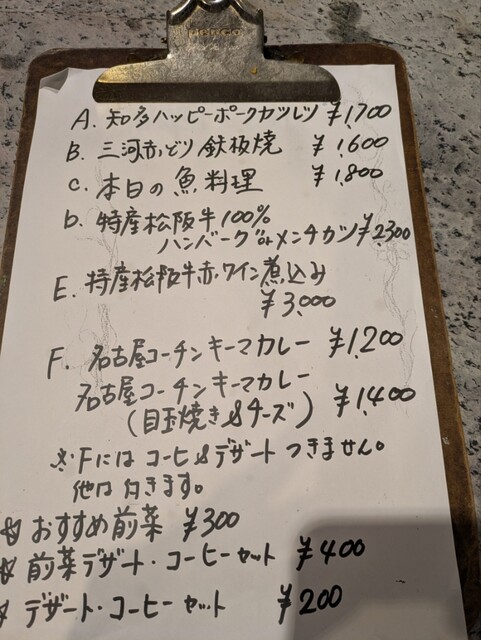 penco
A. 知多ハッピーポークカツレツ ¥1,700
B. 三河赤どり 鉄板焼 ¥1,600
C. 本日の魚料理 ¥1,800
D. 特産松阪牛100%
ハンバーグorメンチカツ ¥2,300
E. 特産松阪牛赤ワイン煮込み
¥3,000
F. 名古屋コーチンキーマカレー ¥1,200
名古屋コーチンキーマカレー
(目玉焼き&チーズ) ¥1,400
※Fにはコーヒ&デザートつきません。
他は付きます。
☆おすすめ前菜 ¥300
☆前菜デザート・コーヒーセット ¥400
☆デザート・コーヒーセット ¥200